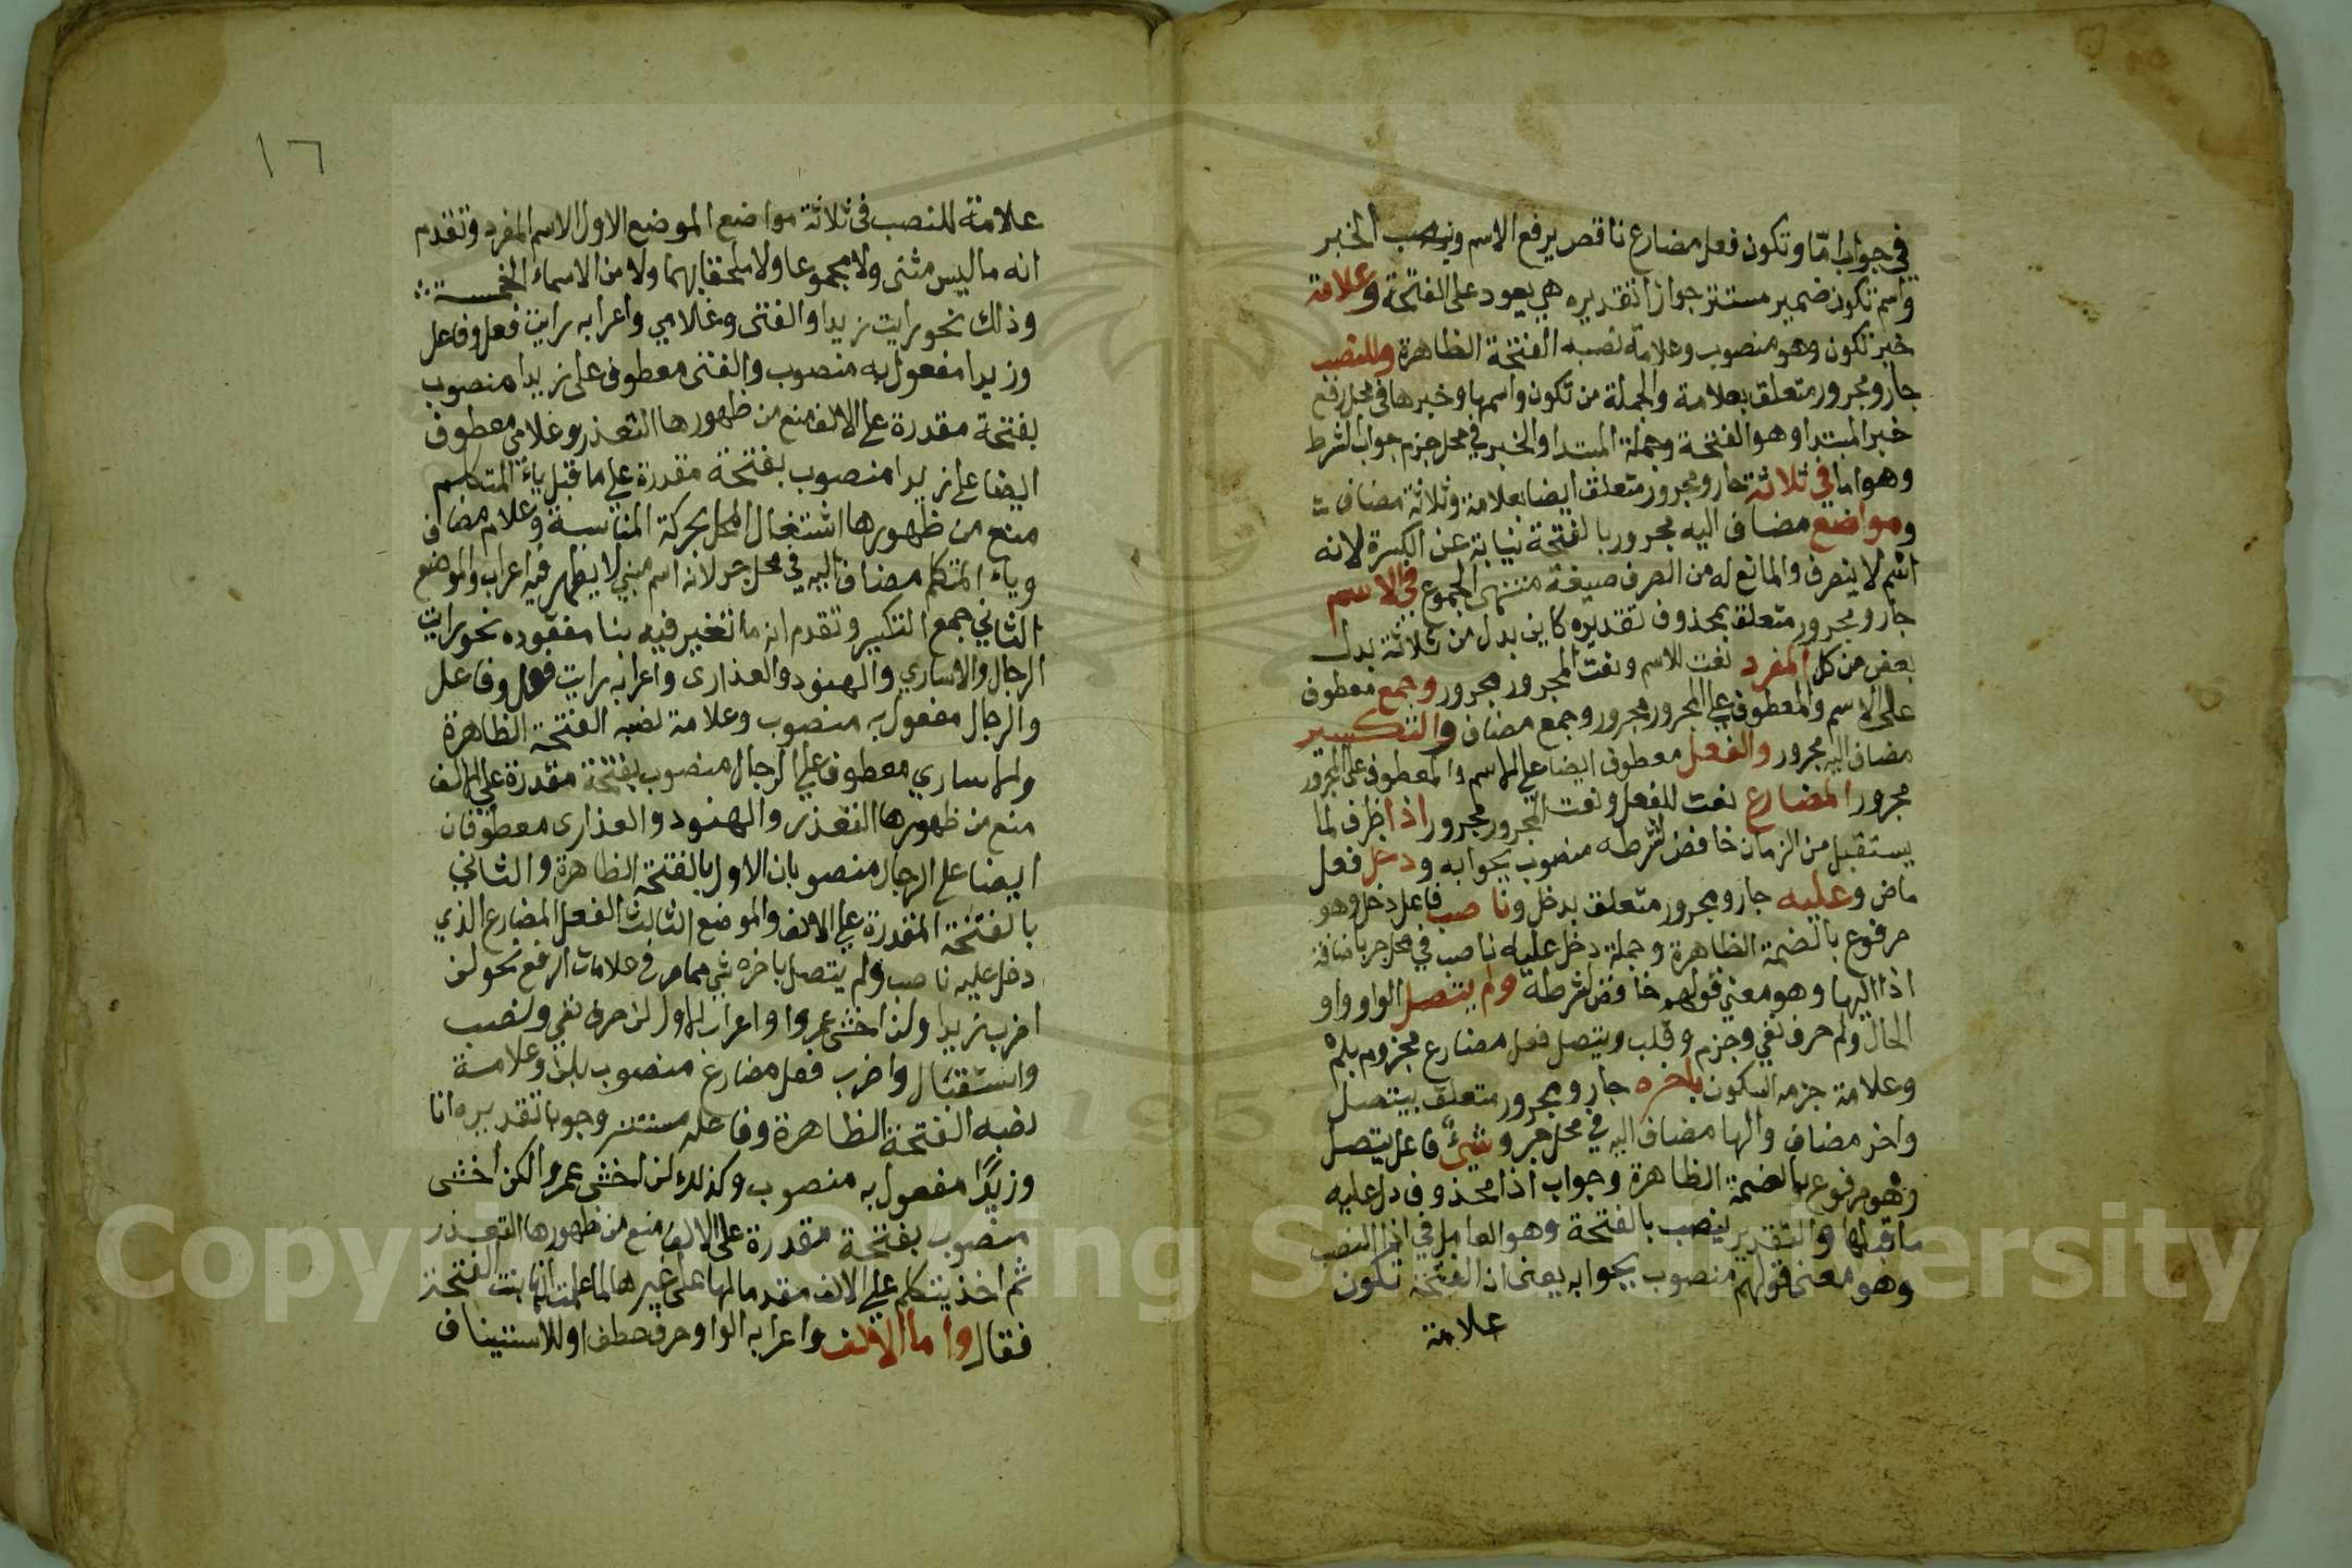 في جواب امّا وتكون فعل مضارع ناقص يرفع الاسم وينصب الخبر
واسم تكون ضمير مستتر جوازا تقديره هي يعود على الفتحة وعلامة
خبر تكون وهو منصوب وعلامة نصبه الفتحة الظاهرة وللنصب
جار ومجرور متعلق بعلامة والجملة من تكون واسمها وخبرها في محل رفع
خبر المبتدا وهو الفتحة وجملة المبتدا والخبر في محل جزم جواب الشرط
وهو اما في ثلاثة جار ومجرور متعلق ايضا بعلامة وثلاثة مضاف
ومواضع مضاف اليه مجرور بالفتحة نيابة عن الكسرة لانه
اسم لا ينصرف والمانع له من الصرف صيغة منتهى الجموع في الاسم
جار ومجرور متعلق بمحذوف تقديره كاين بدل من ثلاثة بدل
بعض من كل المفرد نعت للاسم ونعت المجرور مجرور وجمع معطوف
على الاسم والمعطوف على المجرور مجرور وجمع مضاف والتكسير
مضاف اليه مجرور والفعل معطوف ايضا على الاسم والمعطوف على المجرور
مجرور المضارع نعت للفعل ونعت المجرور مجرور اذا ظرف لما
يستقبل من الزمان خافض لشرطه منصوب بجوابه ودخل فعل
ماض وعليه جار ومجرور متعلق بدخل وناصب فاعل دخل وهو
مرفوع بالضمة الظاهرة وجملة دخل عليه ناصب في محل جر باضافة
اذا اليها وهو معنى قولهم خافض لشرطه ولم يتصل الواو واو
الحال ولم حرف نفي وجزم وقلب ويتصل فعل مضارع مجزوم بلم
وعلامة جزمه السكون باخره جار ومجرور متعلق بيتصل
واخر مضاف والها مضاف اليه في محل جر وشيءٌ فاعل يتصل
وهو مرفوع بالضمة الظاهرة وجواب اذا محذوف دل عليه
ما قبلها والتقدير ينصب بالفتحة وهو العامل في اذا النصب
وهو معنى قولهم منصوب بجوابه يعنى ان الفتحة تكون
علامة
١٦
علامة للنصب في ثلاثة مواضع الموضع الاول الاسم المفرد وتقدم
انه ما ليس مثنى ولا مجموعا ولا ملحقا بهما ولا من الاسماء الخمسة
وذلك نحو رايت زيدا والفتى وغلامي واعرابه رايت فعل وفاعل
وزيدا مفعول به منصوب والفتى معطوف على زيدا منصوب
بفتحة مقدرة على الالف منع من ظهورها التعذر وغلامي معطوف
ايضا على زيدا منصوب بفتحة مقدرة على ما قبل ياء المتكلم
منع من ظهورها اشتغال المحل بحركة المناسبة وغلام مضاف
وياء المتكلم مضاف اليه في محل جر لانه اسم مبني لا يظهر فيه اعراب والموضع
الثاني جمع التكسير وتقدم انه ما تغير فيه بنا مفرده نحو رايت
الرجال والاساري والهنود والعذارى واعرابه رايت فعل وفاعل
والرجال مفعول به منصوب وعلامة نصبه الفتحة الظاهرة
والاساري معطوف على الرجال منصوب بفتحة مقدرة على الالف
منع من ظهورها التعذر والهنود والعذارى معطوفان
ايضا على الرجال منصوبان الاول بالفتحة الظاهرة والثاني
بالفتحة المقدرة على الالف والموضع الثالث الفعل المضارع الذي
دخل عليه ناصب ولم يتصل باخره شي مما مر في علامات الرفع نحو لن
اضرب زيدا ولن اخشى عمروا واعراب الاول لن حرف نفي ونصب
واستقبال واضرب فعل مضارع منصوب بلن وعلامة
نصبه الفتحة الظاهرة وفاعله مستتر وجوبا تقديره انا
وزيدًا مفعول به منصوب وكذلك لن اخشى عمروا لكن اخشى
منصوب بفتحة مقدرة على الالف منع من ظهورها التعذر
ثم اخذ يتكلم على الالف مقدما لها على غيرها لما علمت انها بنت الفتحة
فقال واما الالف واعرابه الواو حرف عطف او للاستيناف
Copyright © King Saud University
1957